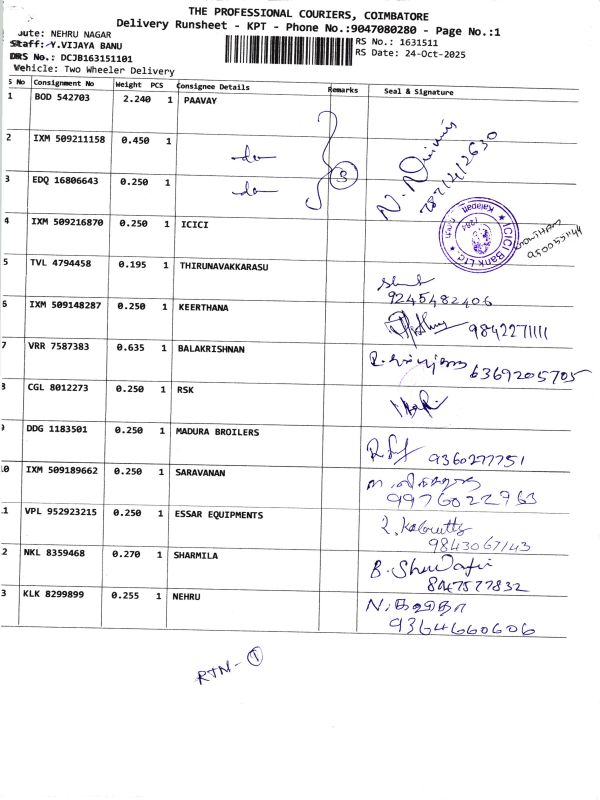 THE PROFESSIONAL COURIERS, COIMBATORE
Delivery Runsheet - KPT - Phone No.:9047080280 - Page No.:1
ute: NEHRU NAGAR
Staff: Y.VIJAYA BANU
DRS No.: DCJB163151101
Vehicle: Two Wheeler Delivery
RS No.: 1631511
RS Date: 24-Oct-2025
S No Consignment No Weight PCS Consignee Details Remarks Seal & Signature
1 BOD 542703 2.240 1 PAAVAY
2 IXM 509211158 0.450 1 -do-
3 EDQ 16806643 0.250 1 -do- 3
4 IXM 509216870 0.250 1 ICICI
ICICI Bank Ltd
5 TVL 4794458 0.195 1 THIRUNAVAKKARASU
9245482406
6 IXM 509148287 0.250 1 KEERTHANA 9842271111
7 VRR 7587383 0.635 1 BALAKRISHNAN 6369205705
8 CGL 8012273 0.250 1 RSK
9 DDG 1183501 0.250 1 MADURA BROILERS 9360277751
10 IXM 509189662 0.250 1 SARAVANAN
9976022963
11 VPL 952923215 0.250 1 ESSAR EQUIPMENTS
9843067143
12 NKL 8359468 0.270 1 SHARMILA
8047577832
13 KLK 8299899 0.255 1 NEHRU N.
9364660606
RTN - 1